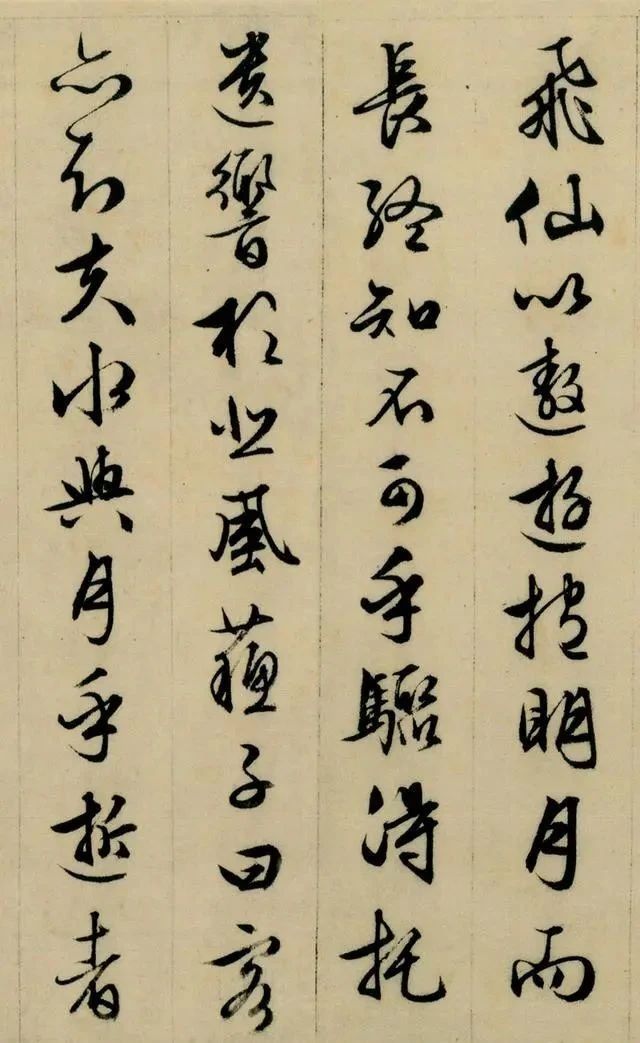 飛仙以遨遊抱明月而
長終知不可乎驟得托
遺響於悲風蘓子曰客
亦知夫水與月乎逝者